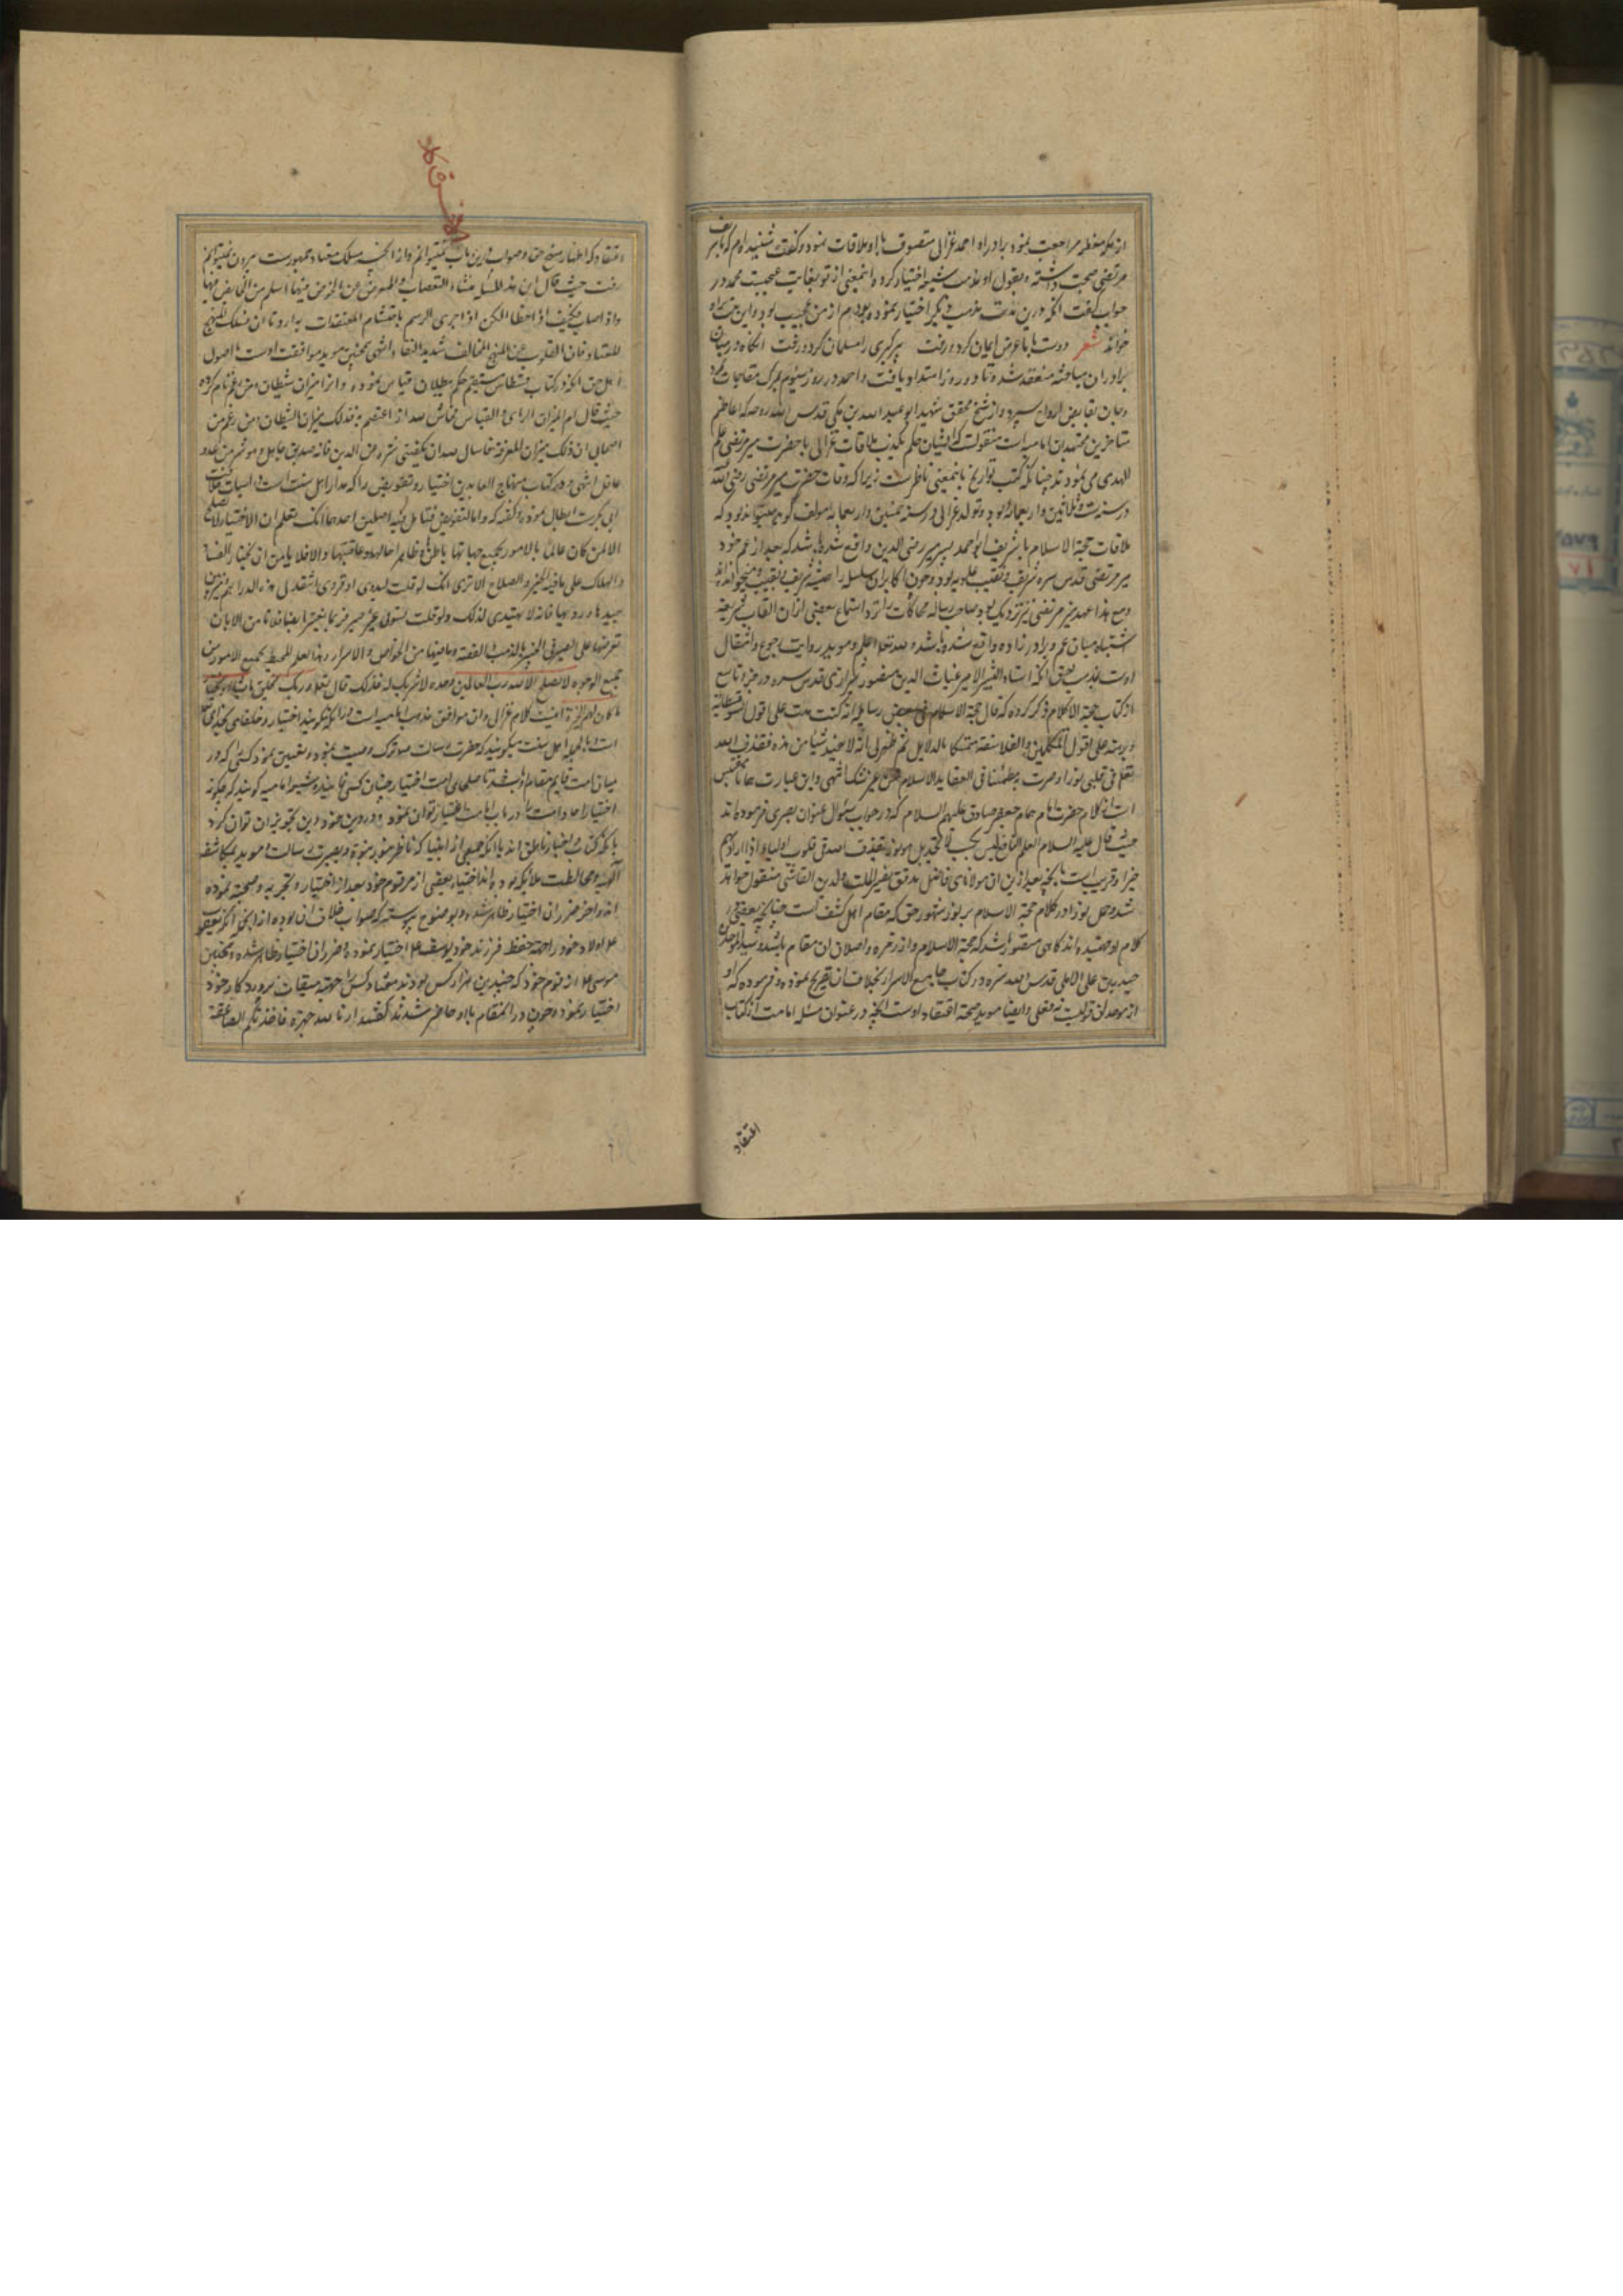 از مکه معظمه مراجعت نمود برادر او احمد غزالی متصوف با او ملاقات نمود و گفت شنیده‌ام که با میر شریف
مرتضی صحبت داشته و بقول او مذهب شیعه اختیار کرده و اینمعنی از تو بغایت عجیبست محمد در
جواب گفت آنکه درین مدت مذهب دیگر اختیار نموده بودم از من عجیب بود و این بیت
خواند شعر دوست با ما عرض ایمان کرد و رفت پیر کبری را مسلمان کرد و رفت آنگاه در میان
برادران مباحثه منعقد شده تا دو روز امتداد یافت و احمد در روز سیوم بمرگ مفاجات
و جان بقابض ارواح سپرد و از شیخ محقق شهید ابو عبدالله بن مکی قدس الله روحه که اعاظم
متاخرین مجتهدین امامیه است منقولست که ایشان حکم بکذب ملاقات غزالی با حضرت میر مرتضی علم
الهدی می نموده‌اند چنانکه کتب تواریخ باینمعنی ناظر است زیرا که وفات حضرت میر مرتضی رضی الله
در سنه ست و ثلاثین و اربعمائه بود و تولد غزالی در سنه خمسین و اربعمائه مولف گوید میتواند بود که
ملاقات حجة الاسلام با شریف ابو احمد پسر میر رضی الدین واقع شده باشد که بعد از عم خود
میر مرتضی قدس سره شریف و نقیب علویه بود و چون اکابر آن سلسله را همیشه شریف و نقیب میخوانده‌اند
و مع هذا عهد میر مرتضی نیز نزدیک بود صاحب رساله محاکات را از استماع بعضی از آن القاب شریفه
اشتباه میان عم و برادرزاده واقع شده باشد و الله تعالی اعلم و موید روایت رجوع و انتقال
اوست بمذهب حق آنکه استاد البشر الامیر غیاث الدین منصور شیرازی قدس سره در جزو تاسع
از کتاب حجة الکلام ذکر کرده که قال حجة الاسلام فی بعض رسایله انه کنت مدت علی اقوال السوفسطائیه
و برهة علی اقول المتکلمین و الفلاسفة متمسکا بالدلایل ثم ظهر لی انه لا یفید شیئا من هذه فقذف الله
تعالی فی قلبی نورا و صرت مطمئنا فی العقاید الاسلام من غیر شک انتهی و این عبارت همانا مقتبس
است از کلام حضرت امام همام جعفر صادق علیهم السلام که در جواب سئوال عنوان بصری فرموده‌اند
حیث قال علیه السلام العلم النافع لیس یکسب لا تحدیل هو نور یقذف الله فی قلوب اولیاء اذا اراد بهم
خیرا و قریبست باینچه بعد ازین از مولانای فاضل مدقق نصیر الملت والدین القاشی منقول خواهد
شد و حمل نور در کلام حجة الاسلام بر نور شهود حق که مقام اهل کشف است چنانچه بعضی از
کلام او فهمیده‌اند گاهی متصور باشد که حجة الاسلام و از زمره واصلان آن مقام باشد و سید الموحدین
حیدر بن علی الاملی قدس الله سره در کتاب جامع الاسرار بخلاف آن تصریح نموده و فرموده که او
از موحدان قولیست نه فعلی و ایضا موید صحت اعتقاد اوست آنچه در عنوان مسئله امامت از کتاب
اعتقاد
اعتقاد که اظهار منهج حق و صواب درین باب نمیتوانم و از آنچه مسلک معتاد جمهورست بیرون نمیتوانم
رفت حیث قال ان هذه المسئله منشاء التعصبات و المعرض عن الخوض فیها اسلم من الخایض فیها
و ان اصاب فکیف اذا اخطا لکن اذا جری الرسم باختتام المعتقدات به اردنا ان نسلک المنهج
المعتاد فان القلوب عن المنهج المخالف شدید النفار انتهی همچنین موید موافقت اوست با اصول
اهل حق آنکه در کتاب قسطاس مستقیم حکم ببطلان قیاس نموده و آنرا میزان شیطان نام کرده
حیث قال اما میزان الرای و القیاس فحاش لله ان اعتصم به فذلک میزان الشیطان و من زعم من
اصحابی ان ذلک میزان المعرفة فاسال الله ان یکفینی شره عن الدین فانه صدیق جاهل و هو شر من عدو
عاقل انتهی و در کتاب منهاج العابدین اختیار و تفویض را که مدار اهل سنت است در اثبات خلافت
ابی بکر است ابطال نموده و گفته که و اما التفویض فتامل فیه اصلین احدهما انک تعلم ان الاختیار لا یصلح
الا لمن کان عالما بالامور بجمیع جهاتها باطنها و ظاهرها حالها و عاقبتها و الا فلا یامن ان یختار الفساد
و الهلاک علی ما فیه الخیر و الصلاح الا تری انک لو قلت لبدوی او قروی انتقد لی هذه الدراهم و میز بین
جیدها و ردیها فانه لا یهتدی لذلک و لو قلت لسوقی غیر صیرفی فربما یتعسر ایضا فلا تامن الا بان
تعرضها علی الصیرفی الخبیر بالذهب و الفضة و ما فیهما من الخواص و الاسرار و هذا العلم المحیط بجمیع الامور من
جمیع الوجوه لا یصلح الا لله رب العالمین وحده لا شریک له فلذلک قال تعالی و ربک یخلق ما یشاء و یختار
ما کان لهم الخیرة اینست کلام غزالی و آن موافق مذهب امامیه است
است و بالجمله اهل سنت میگویند که حضرت رسالت متروک وصیت نمود و تعیین ننمود کسی که در
میان امت قایم مقام او باشد تا صلحای امت اختیار چنان کسی نمایند و شیعه امامیه گویند که چگونه
اختیار احاد امت را در باب امامت اعتبار توان نمود و در دین خود این تجویز آن توان کرد
با آنکه کتاب و اخبار ناطق اند بآنکه جمعی از انبیا که ناظر بنور نبوة و بصیرت رسالت موید بمکاشفه
الهیه و مخالطت ملائکه بوده‌اند اختیار بعضی از مردم خود بعد از اختیار و تجربه و صحبت نموده
اند و آخر ضرر آن اختیار ظاهر شده و بوضوح پیوسته که صواب خلاف آن بوده از آنجمله آنکه یعقوب
علم اولاد خود را جهة حفظ فرزند خود یوسف علم اختیار نموده و ضرر آن اختیار ظاهر شده و همچنین
موسی علم از قوم خود که چندین هزار کس بودند هفتاد کس جهة میقات پروردگار خود
اختیار نموده و چون در آنمقام با او حاضر شدند گفتند ارنا الله جهرة فاخذتکم الصاعقة